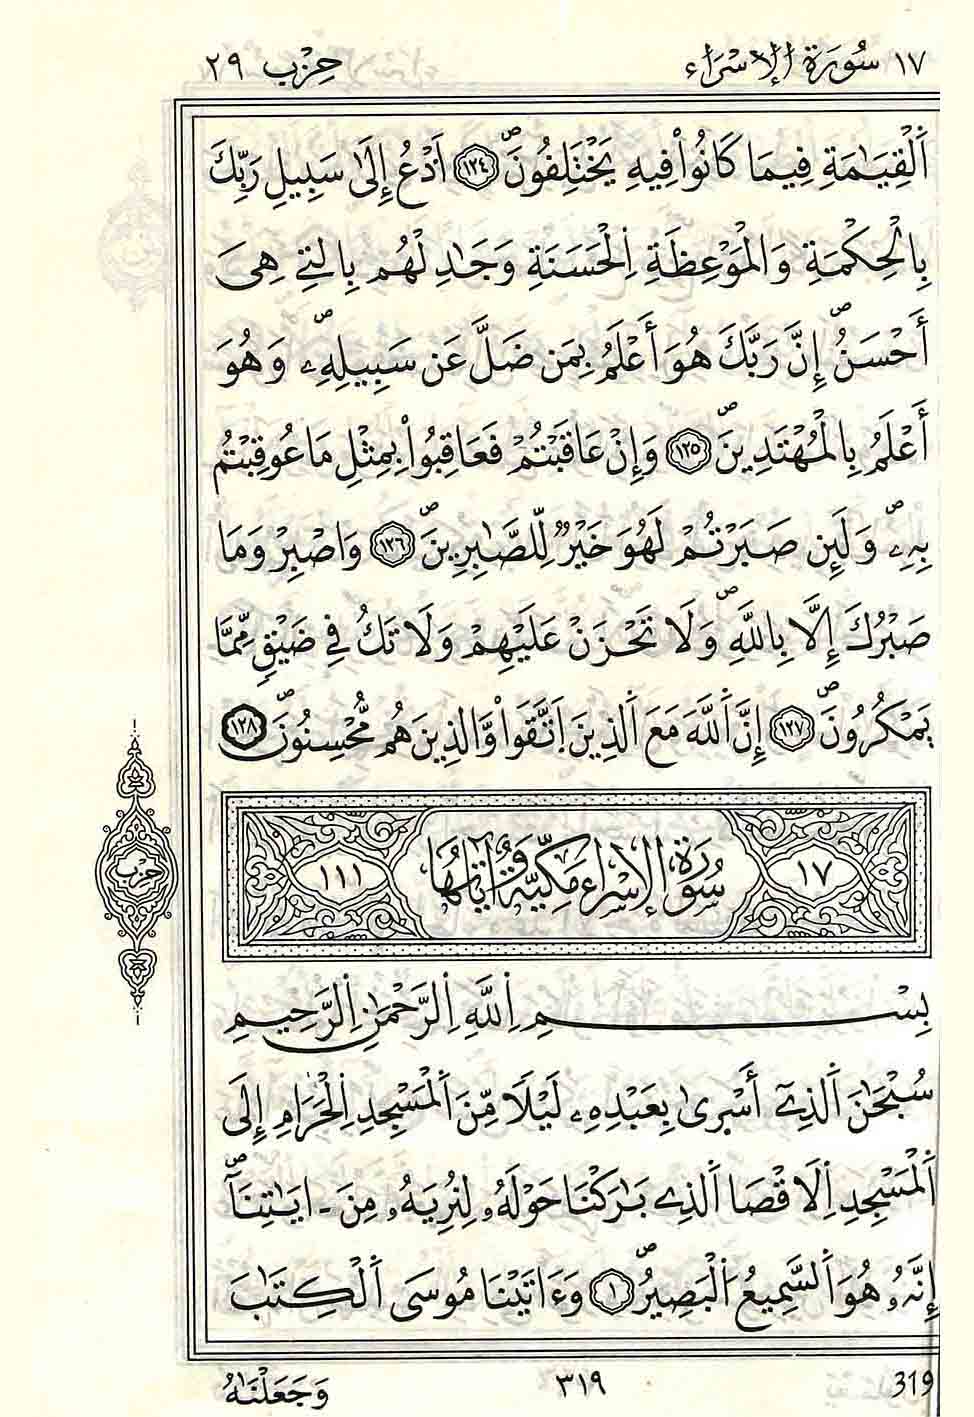 ١٧ سُورَةُ الإِسْرَاء حِزْب ٢٩
اَ۬لْقِيَٰمَةِ فِيمَا كَانُواْ فِيهِ يَخْتَلِفُونَۖ ١٢٤ اَ۟دْعُ إِلَىٰ سَبِيلِ رَبِّكَ
بِالْحِكْمَةِ وَالْمَوْعِظَةِ اِ۬لْحَسَنَةِ وَجَٰدِلْهُم بِالتِے هِىَ
أَحْسَنُۖ إِنَّ رَبَّكَ هُوَ أَعْلَمُ بِمَن ضَلَّ عَن سَبِيلِهِۦۖ وَهُوَ
أَعْلَمُ بِالْمُهْتَدِينَۖ ١٢٥ وَإِنْ عَاقَبْتُمْ فَعَاقِبُواْ بِمِثْلِ مَا عُوقِبْتُم
بِهِۦۖ وَلَئِن صَبَرْتُمْ لَهُوَ خَيْرٌ لِّلصَّٰبِرِينَۖ ١٢٦ وَاصْبِرْ وَمَا
صَبْرُكَ إِلَّا بِاللَّهِۖ وَلَا تَحْزَنْ عَلَيْهِمْ وَلَا تَكُ فِے ضَيْقٍ مِّمَّا
يَمْكُرُونَۖ ١٢٧ إِنَّ اَ۬للَّهَ مَعَ اَ۬لذِينَ اَ۪تَّقَواْ وَّالذِينَ هُم مُّحْسِنُونَۖ ١٢٨
١٧ سُورَةُ الإِسْرَاءِ مَكِّيَّةٌ وَءَايَاتُهَا ١١١
حِزْب
بِسْمِ اِ۬للَّهِ اِ۬لرَّحْمَٰنِ اِ۬لرَّحِيمِ
سُبْحَٰنَ اَ۬لذِےٓ أَسْرَىٰ بِعَبْدِهِۦ لَيْلًا مِّنَ اَ۬لْمَسْجِدِ اِ۬لْحَرَامِ إِلَى
اَ۬لْمَسْجِدِ اِ۬لَاقْصَا اَ۬لذِے بَٰرَكْنَا حَوْلَهُۥ لِنُرِيَهُۥ مِنَ اٰيَٰتِنَآۖ
إِنَّهُۥ هُوَ اَ۬لسَّمِيعُ اُ۬لْبَصِيرُۖ ١ وَءَاتَيْنَا مُوسَى اَ۬لْكِتَٰبَ
319 ٣١٩ وَجَعَلْنَٰهُ